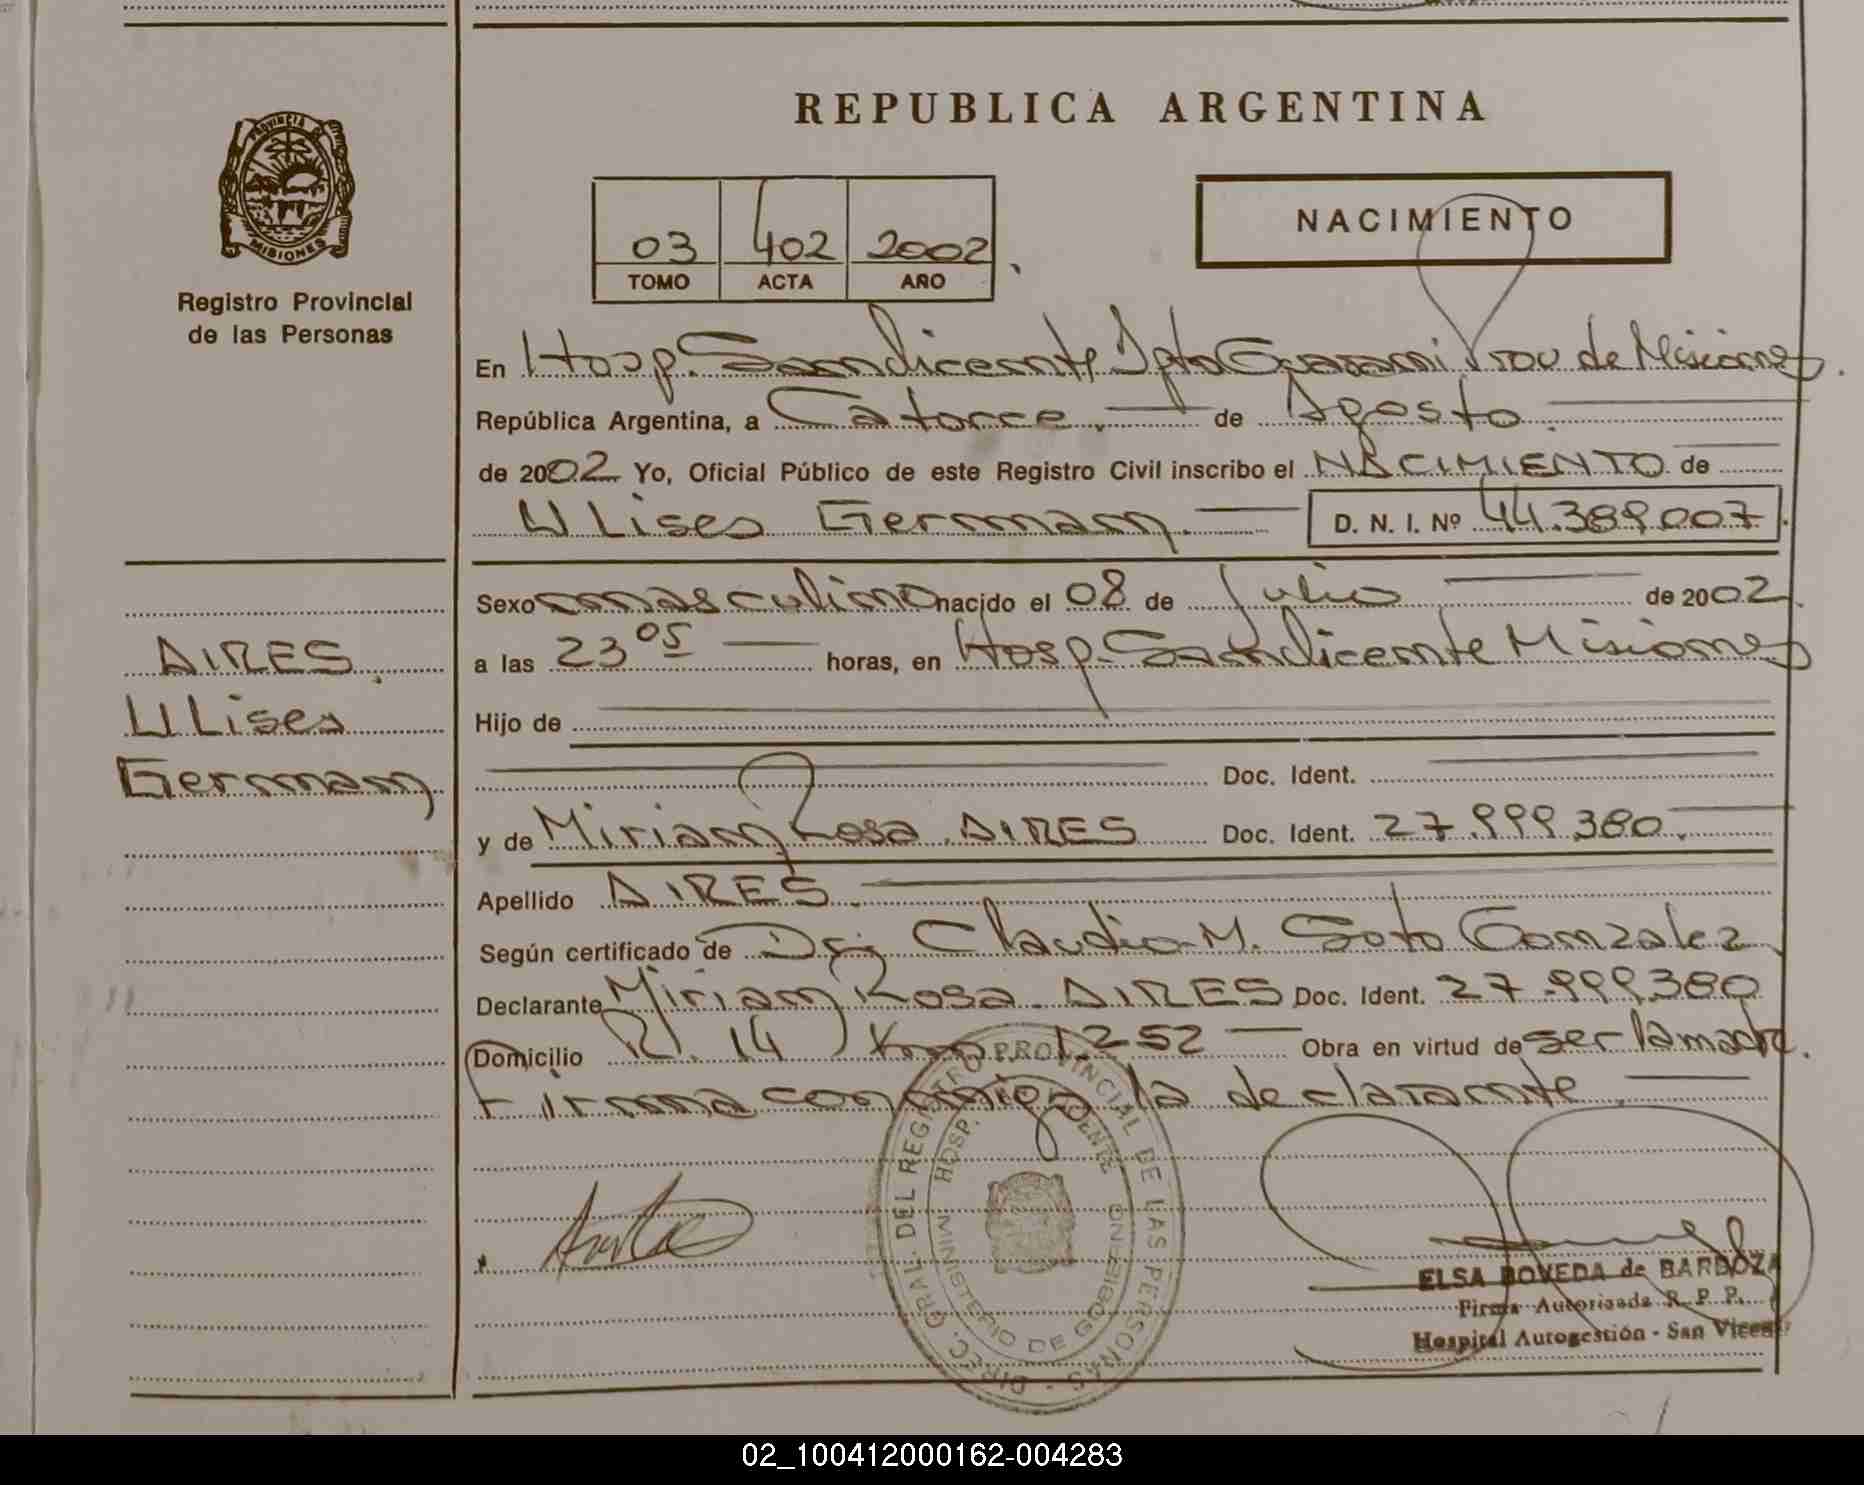 REPUBLICA ARGENTINA
PROVINCIA DE
MISIONES
Registro Provincial
de las Personas
03 402 2002
TOMO ACTA AÑO
NACIMIENTO
En Hosp. San Vicente Dpto Guarani Prov de Misiones
República Argentina, a Catorce. de Agosto.
de 2002 Yo, Oficial Público de este Registro Civil inscribo el NACIMIENTO de
Ulises German. D. N. I. Nº 44.389.007
Sexo masculino nacido el 08 de Julio de 2002
a las 23 05 horas, en Hosp. San Vicente Misiones
Hijo de
Doc. Ident.
y de Miriam Rosa AIRES Doc. Ident. 27.999.380.
Apellido AIRES.
Según certificado de Dr. Claudio M. Soto Gonzalez
Declarante Miriam Rosa AIRES Doc. Ident. 27.999.380
Domicilio R. 14 Km 1252 Obra en virtud de ser la madre.
Firma conmigo la declarante.
AIRES.
Ulises
German
DIREC. GRAL. DEL REGISTRO PROVINCIAL DE LAS PERSONAS
HOSP. VICENTE
MINISTERIO DE GOBIERNO
ELSA BOVEDA de BARBOZA
Firma Autorizada R. P. P.
Hospital Autogestión - San Vicente
02_100412000162-004283